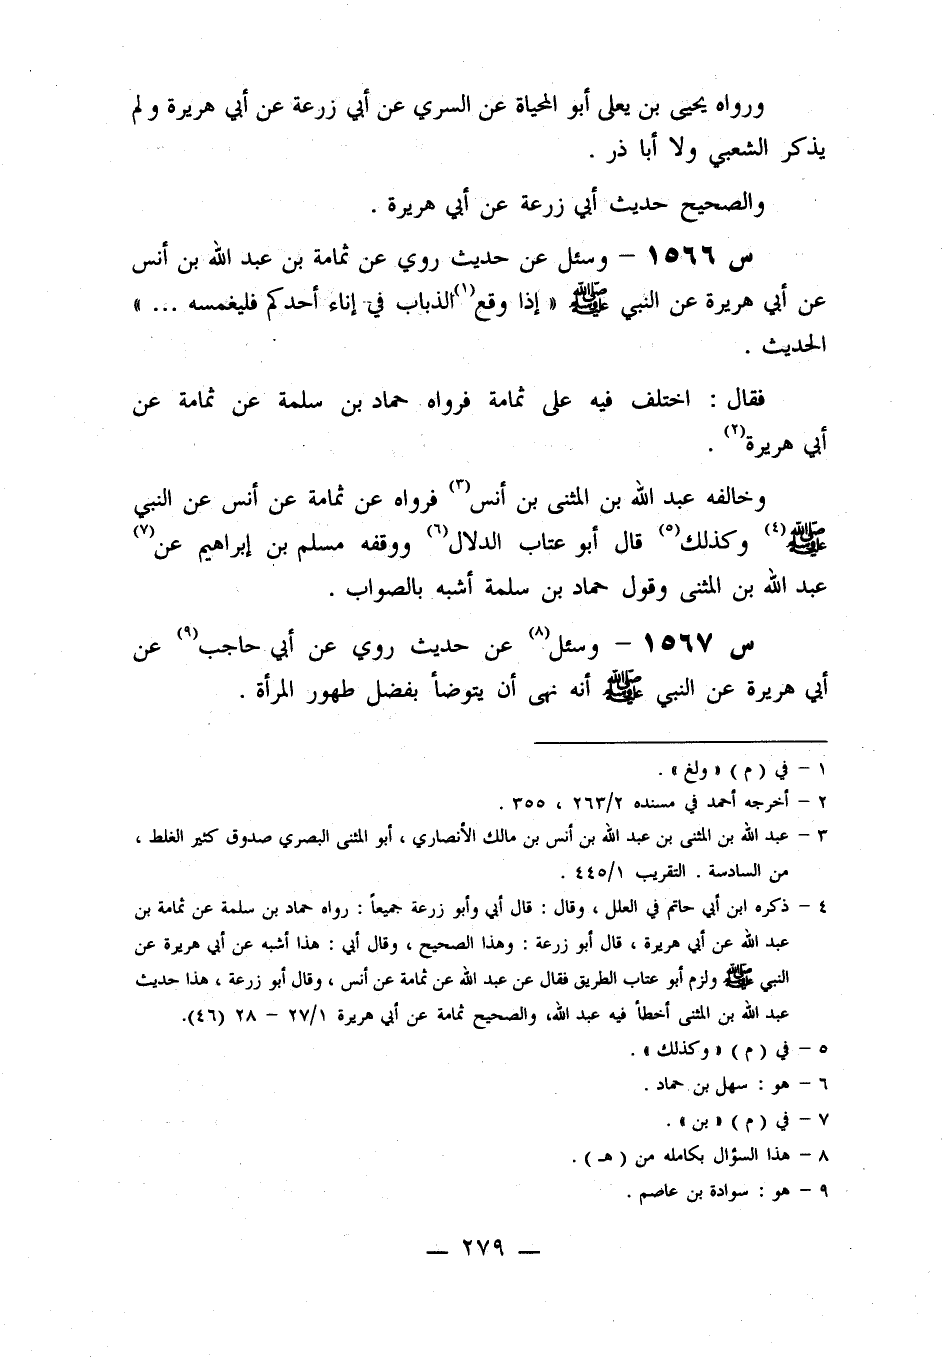 ورواه يحيى بن يعلى أبو المحياة عن السري عن أبي زرعة عن أبي هريرة ولم
يذكر الشعبي ولا أبا ذر .
والصحيح حديث أبي زرعة عن أبي هريرة .
س ١٥٦٦ – وسئل عن حديث روي عن ثمامة بن عبد الله بن أنس
عن أبي هريرة عن النبي ﷺ « إذا وقع(١) الذباب في إناء أحدكم فليغمسه ... »
الحديث .
فقال : اختلف فيه على ثمامة فرواه حماد بن سلمة عن ثمامة عن
أبي هريرة(٢) .
وخالفه عبد الله بن المثنى بن أنس(٣) فرواه عن ثمامة عن أنس عن النبي
ﷺ(٤) وكذلك(٥) قال أبو عتاب الدلال(٦) ووقفه مسلم بن إبراهيم عن(٧)
عبد الله بن المثنى وقول حماد بن سلمة أشبه بالصواب .
س ١٥٦٧ – وسئل(٨) عن حديث روي عن أبي حاجب(٩) عن
أبي هريرة عن النبي ﷺ أنه نهى أن يتوضأ بفضل طهور المرأة .
١ – في ( م ) « ولغ » .
٢ – أخرجه أحمد في مسنده ٢٦٣/٢ ، ٣٥٥ .
٣ – عبد الله بن المثنى بن عبد الله بن أنس بن مالك الأنصاري ، أبو المثنى البصري صدوق كثير الغلط ،
من السادسة . التقريب ٤٤٥/١ .
٤ – ذكره ابن أبي حاتم في العلل ، وقال : قال أبي وأبو زرعة جميعاً : رواه حماد بن سلمة عن ثمامة بن
عبد الله عن أبي هريرة ، قال أبو زرعة : وهذا الصحيح ، وقال أبي : هذا أشبه عن أبي هريرة عن
النبي ﷺ ولزم أبو عتاب الطريق فقال عن عبد الله عن ثمامة عن أنس ، وقال أبو زرعة ، هذا حديث
عبد الله بن المثنى أخطأ فيه عبد الله، والصحيح ثمامة عن أبي هريرة ٢٧/١ – ٢٨ (٤٦).
٥ – في ( م ) « وكذلك » .
٦ – هو : سهل بن حماد .
٧ – في ( م ) « بن » .
٨ – هذا السؤال بكامله من ( هـ ) .
٩ – هو : سوادة بن عاصم .
— ٢٧٩ —